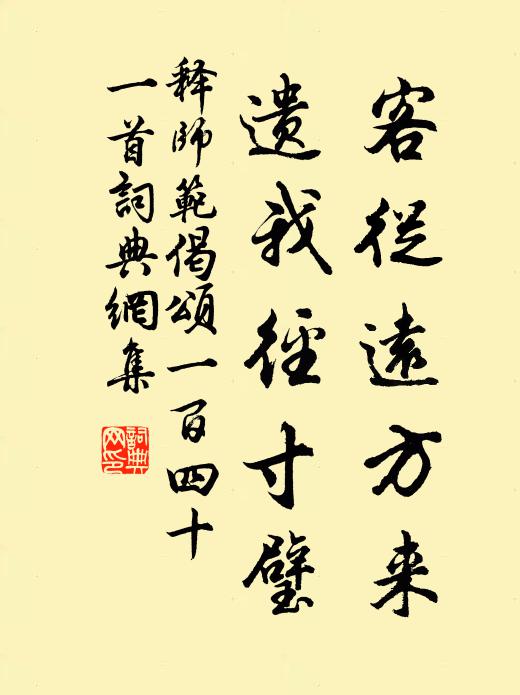 客從遠方来
遺我徑寸璧
释師範偈頌一百四十
一首詞典網集
詞典網印